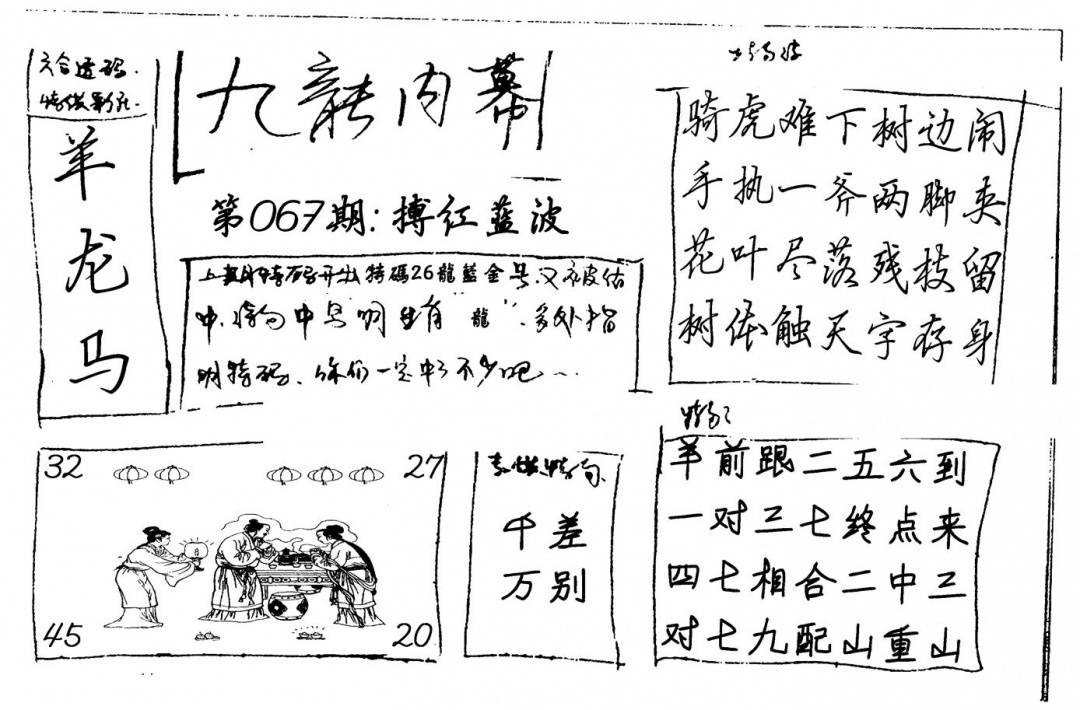 六合透码
羊
龙
马
九龍内幕
第067期:搏红蓝波
上期特码开出特碼26龍藍金号又被估
中,特句中早明生肖“龍”,多处指
明特码、你们一定中了不少吧~
骑虎难下树边闹
手执一斧两脚夹
花叶尽落残枝留
树依触天字存身
32
27
45
20
千差
万别
羊前跟二五六到
一对三七终点来
四七相合二中三
对七九配山重山